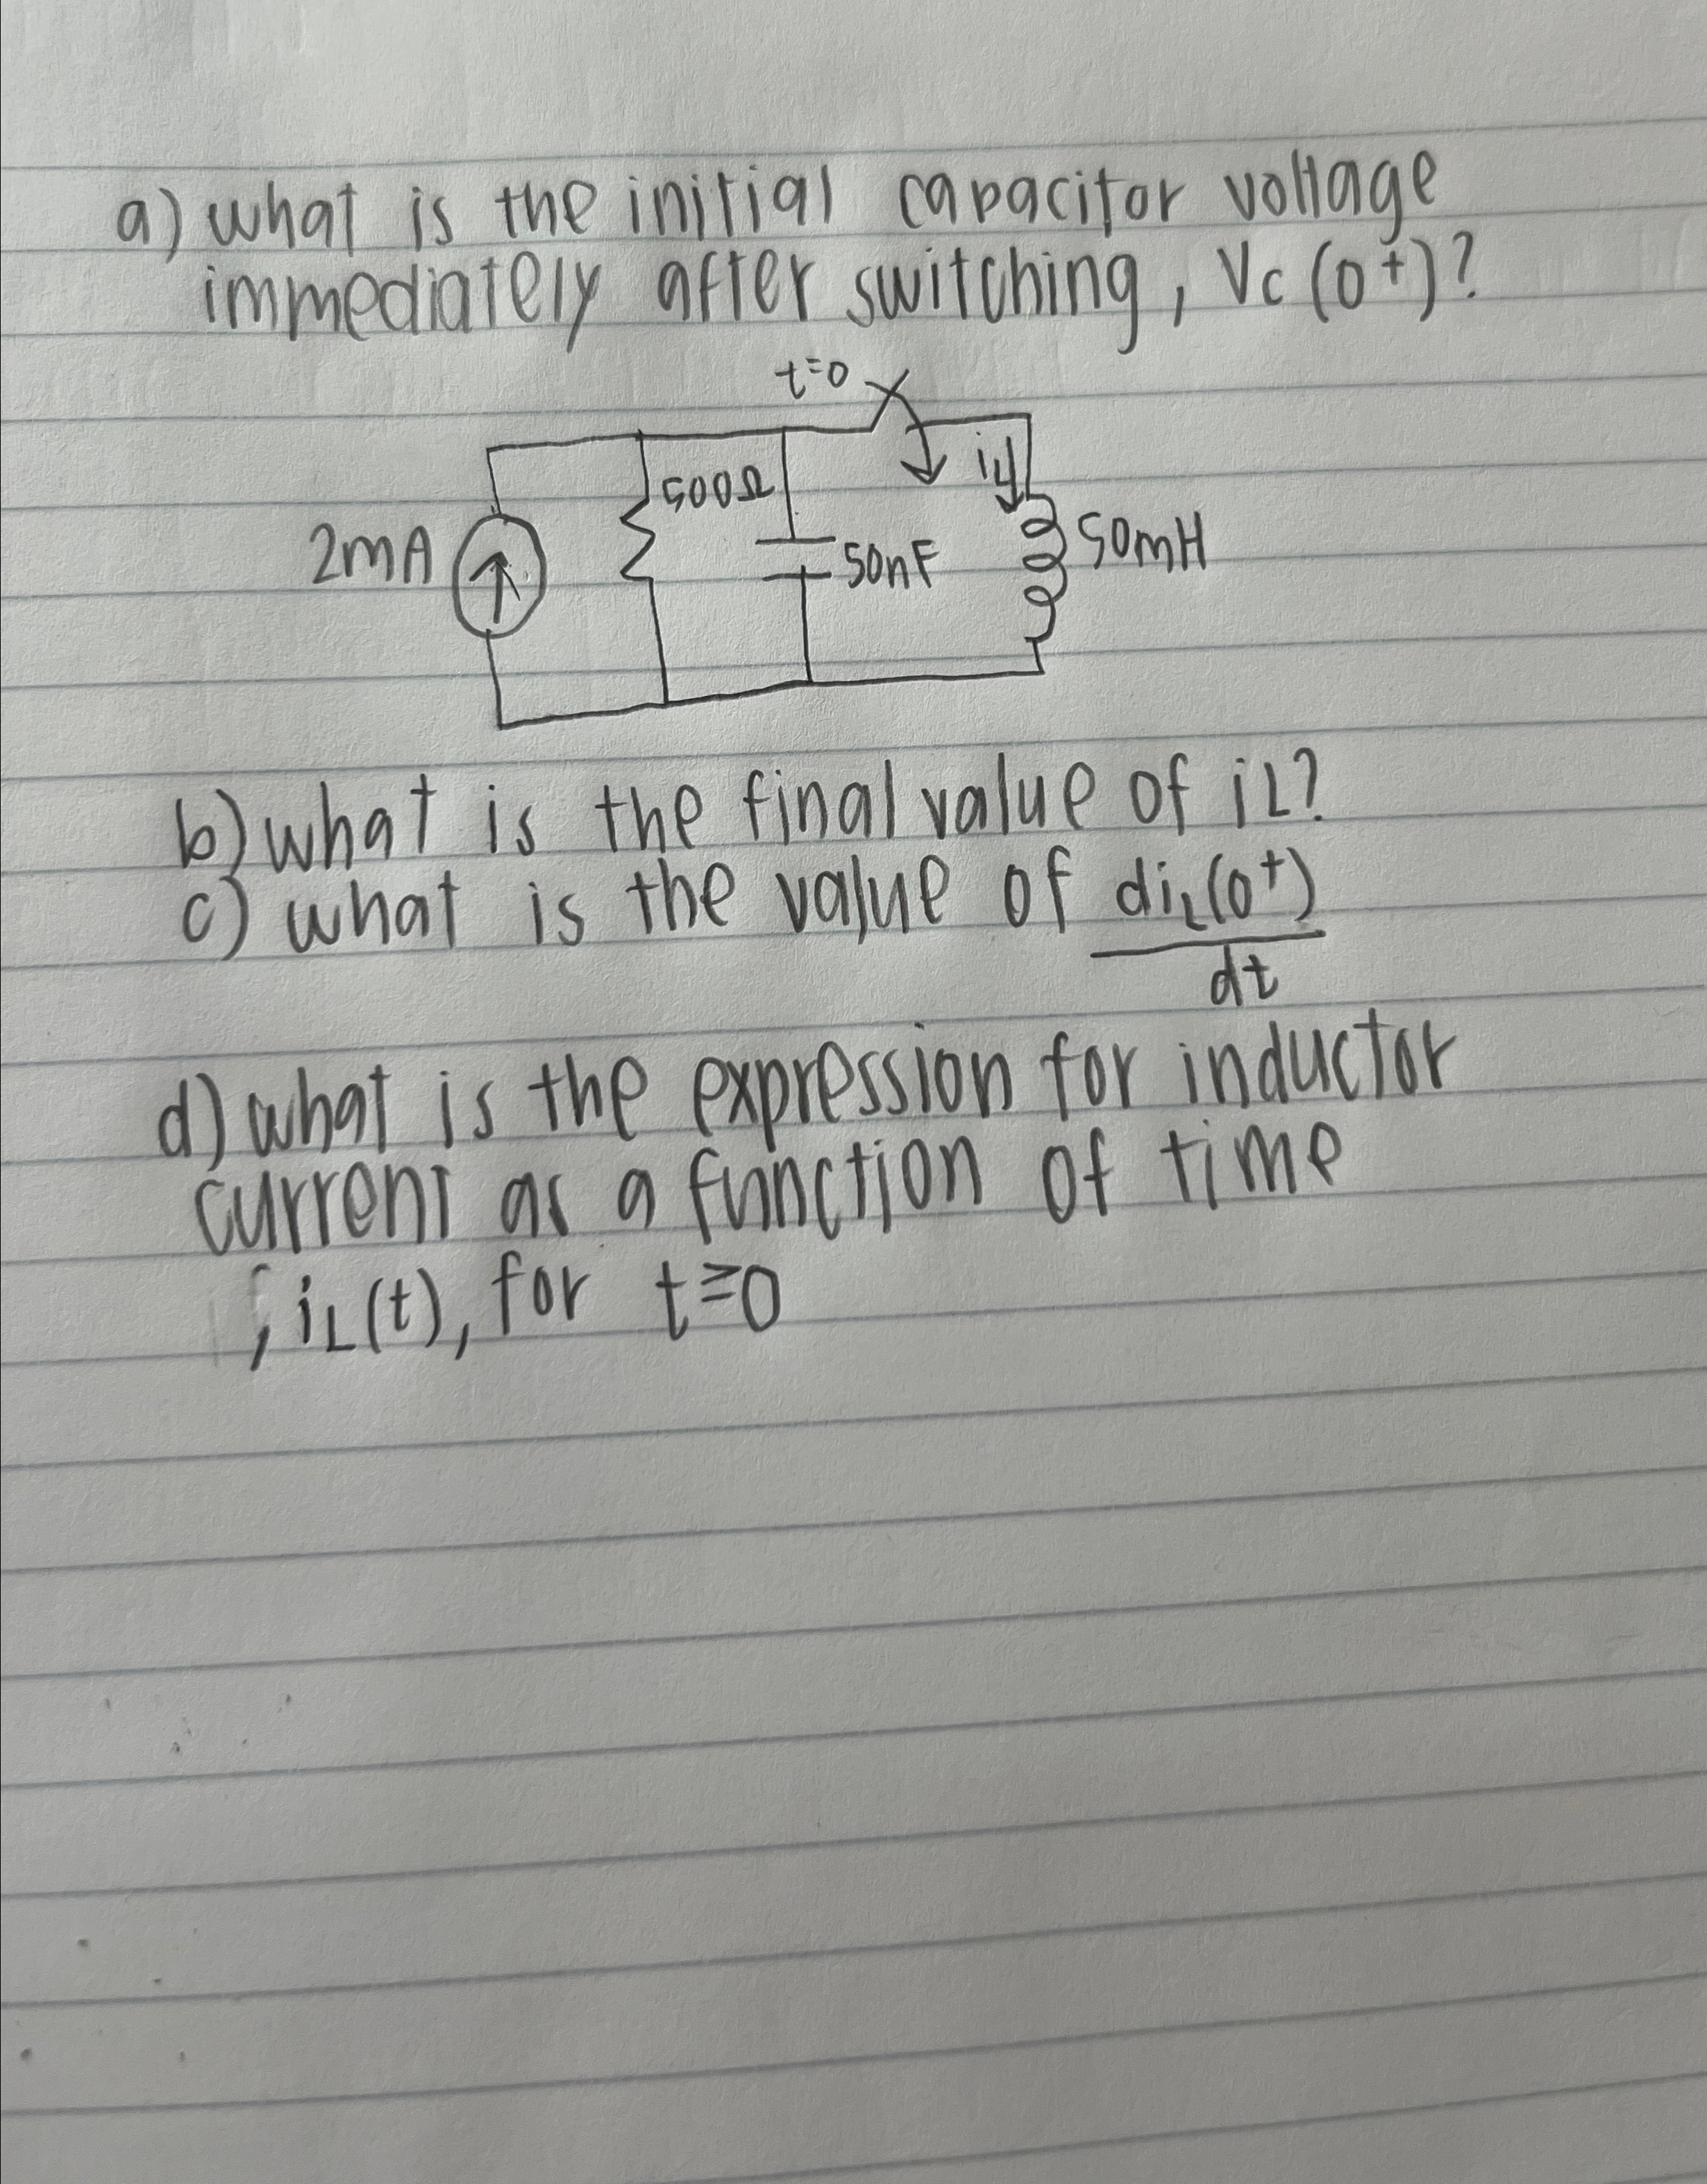 a) what is the initial capacitor voltage
immediately after switching, Vc (0+)?
t=0
500Ω
iL
2mA
50nF
50mH
b) what is the final value of iL?
c) what is the value of diL(0+)
dt
d) what is the expression for inductor
current as a function of time
, iL(t), for t≥0